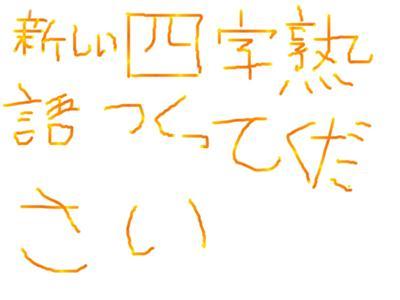 新しい四字熟
語つくってくだ
さい